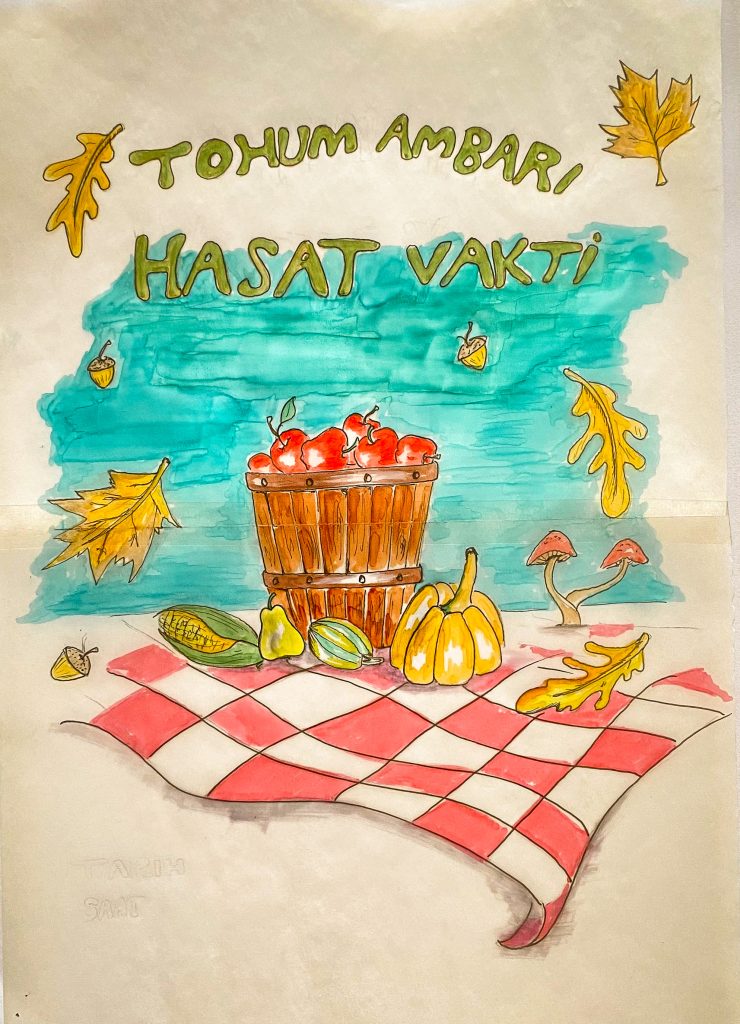 TOHUM AMBARI
HASAT VAKTİ
TARIH
SAAT